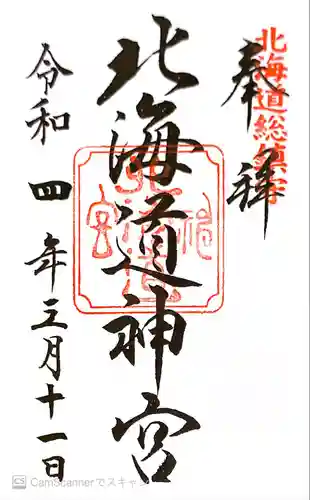 北海道総鎮守
奉拝
北海道神宮
北海道神宮
令和四年三月十一日
CS CamScannerでスキャ